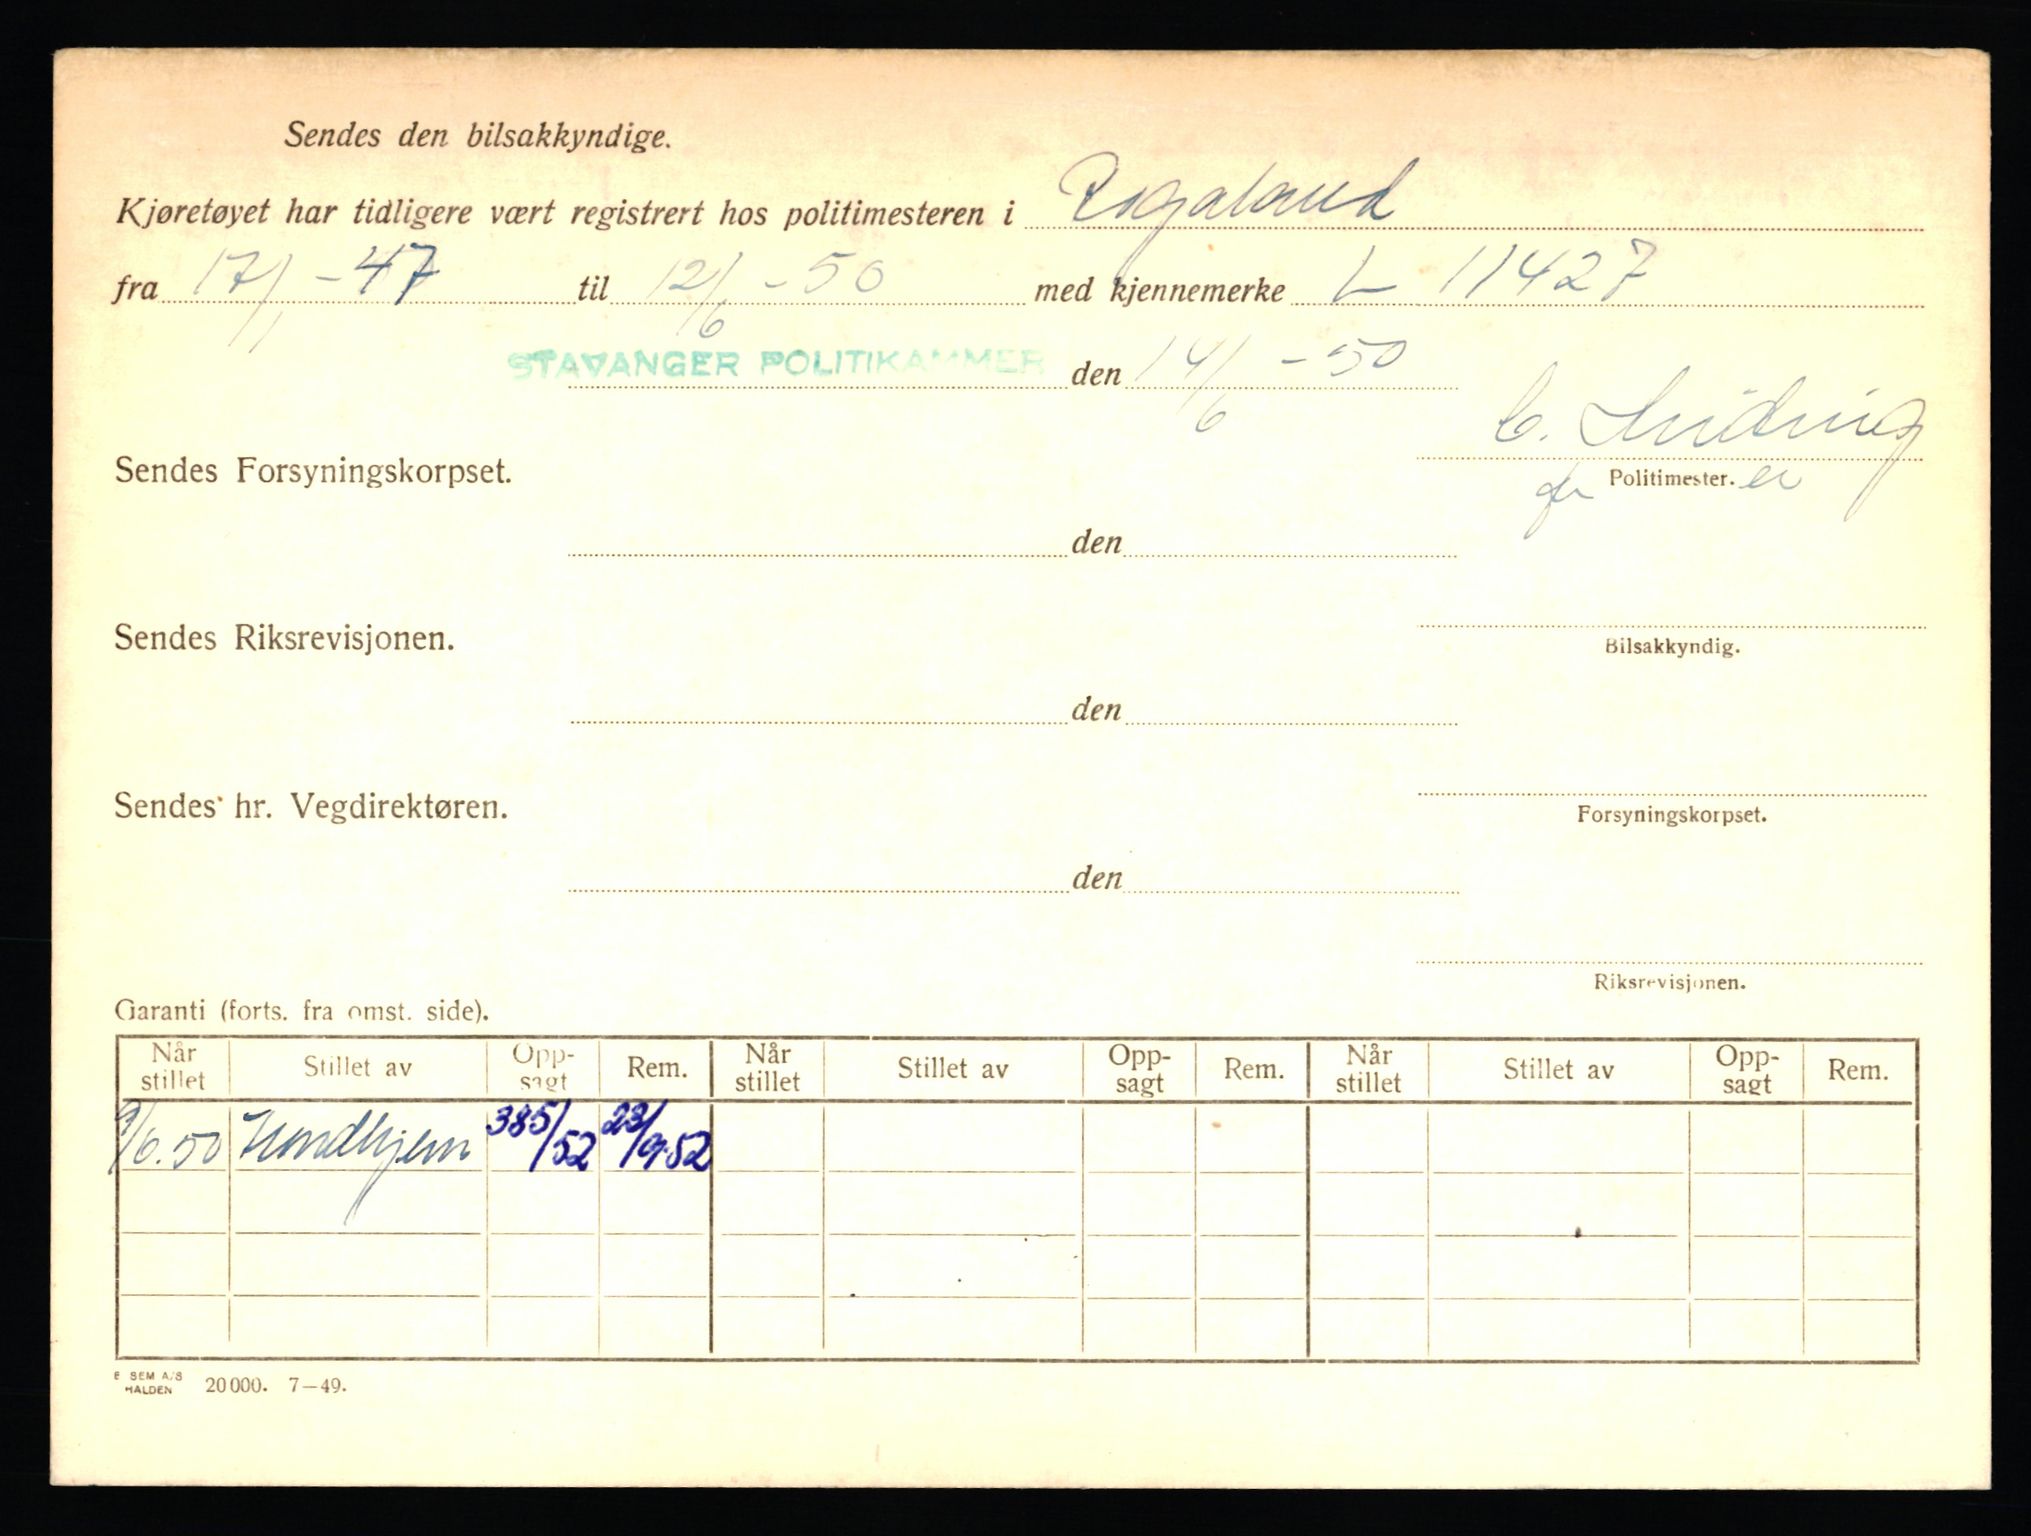 Sendes den bilsakkyndige.
Kjøretøyet har tidligere vært registrert hos politimesteren i Rogaland
fra 17/1 - 47 til 12/6 - 50 med kjennemerke L 11427
STAVANGER POLITIKAMMER den 14/6 - 50
Sendes Forsyningskorpset.
Politimester.
den
Sendes Riksrevisjonen.
Bilsakkyndig.
den
Sendes hr. Vegdirektøren.
Forsyningskorpset.
den
Riksrevisjonen.
Garanti (forts. fra omst. side).
Når stillet Stillet av Opp-sagt Rem. Når stillet Stillet av Opp-sagt Rem. Når stillet Stillet av Opp-sagt Rem.
9/6.50 385/52 23/9.52
E SEM A/S
HALDEN 20 000. 7—49.